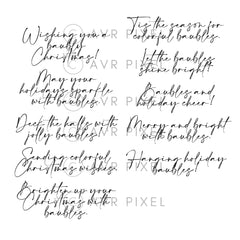 Wishing you a
baubly
Christmas!
May your
holidays sparkle
with baubles.
Deck the halls with
jolly baubles!
Sending colorful
Christmas wishes.
Brighten up your
Christmas with
baubles.
'Tis the season for
colorful baubles.
Let the baubles
shine bright!
Baubles and
holiday cheer!
Merry and bright
with baubles!
Hanging holiday
baubles!
AVR PIXEL
AVR PIXEL
AVR PIXEL
AVR PIXEL
AVR PIXEL
AVR PIXEL